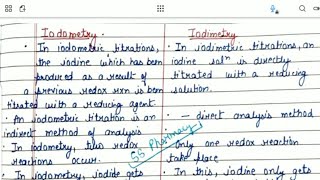 Iodometry.
• In iodometric titrations,
the iodine which has been
produced as a result of
a previous redox rxn is been
titrated with a reducing agent.
• An iodometric titration is an
indirect method of analysis
• In iodometry, two redox
reactions occur.
• In iodometry, iodide gets
Iodimetry.
• In iodimetric titrations, an
iodine solⁿ is directly
titrated with a reducing
solution.
• — direct analysis method
• Only one redox reaction
take place
• In this, iodine only gets
SS Pharmacy